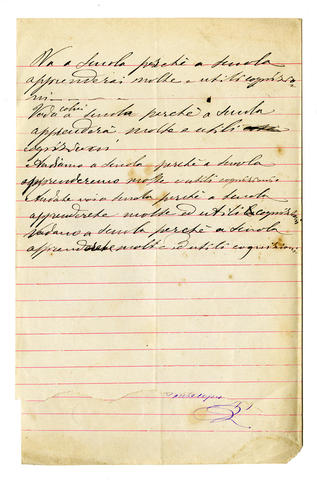 Va a scuola perchè a scuola
apprenderai molte e utili cognizio-
ni
Vada colui a scuola perchè a scuola
apprenderà molte e utili
cognizioni
Andiamo a scuola perchè a scuola
apprenderemo molte e utili cognizioni
Andate voi a scuola perchè a scuola
apprenderete molte ed utili cognizioni
Vadano a scuola perchè a scuola
molte ed utili cognizioni